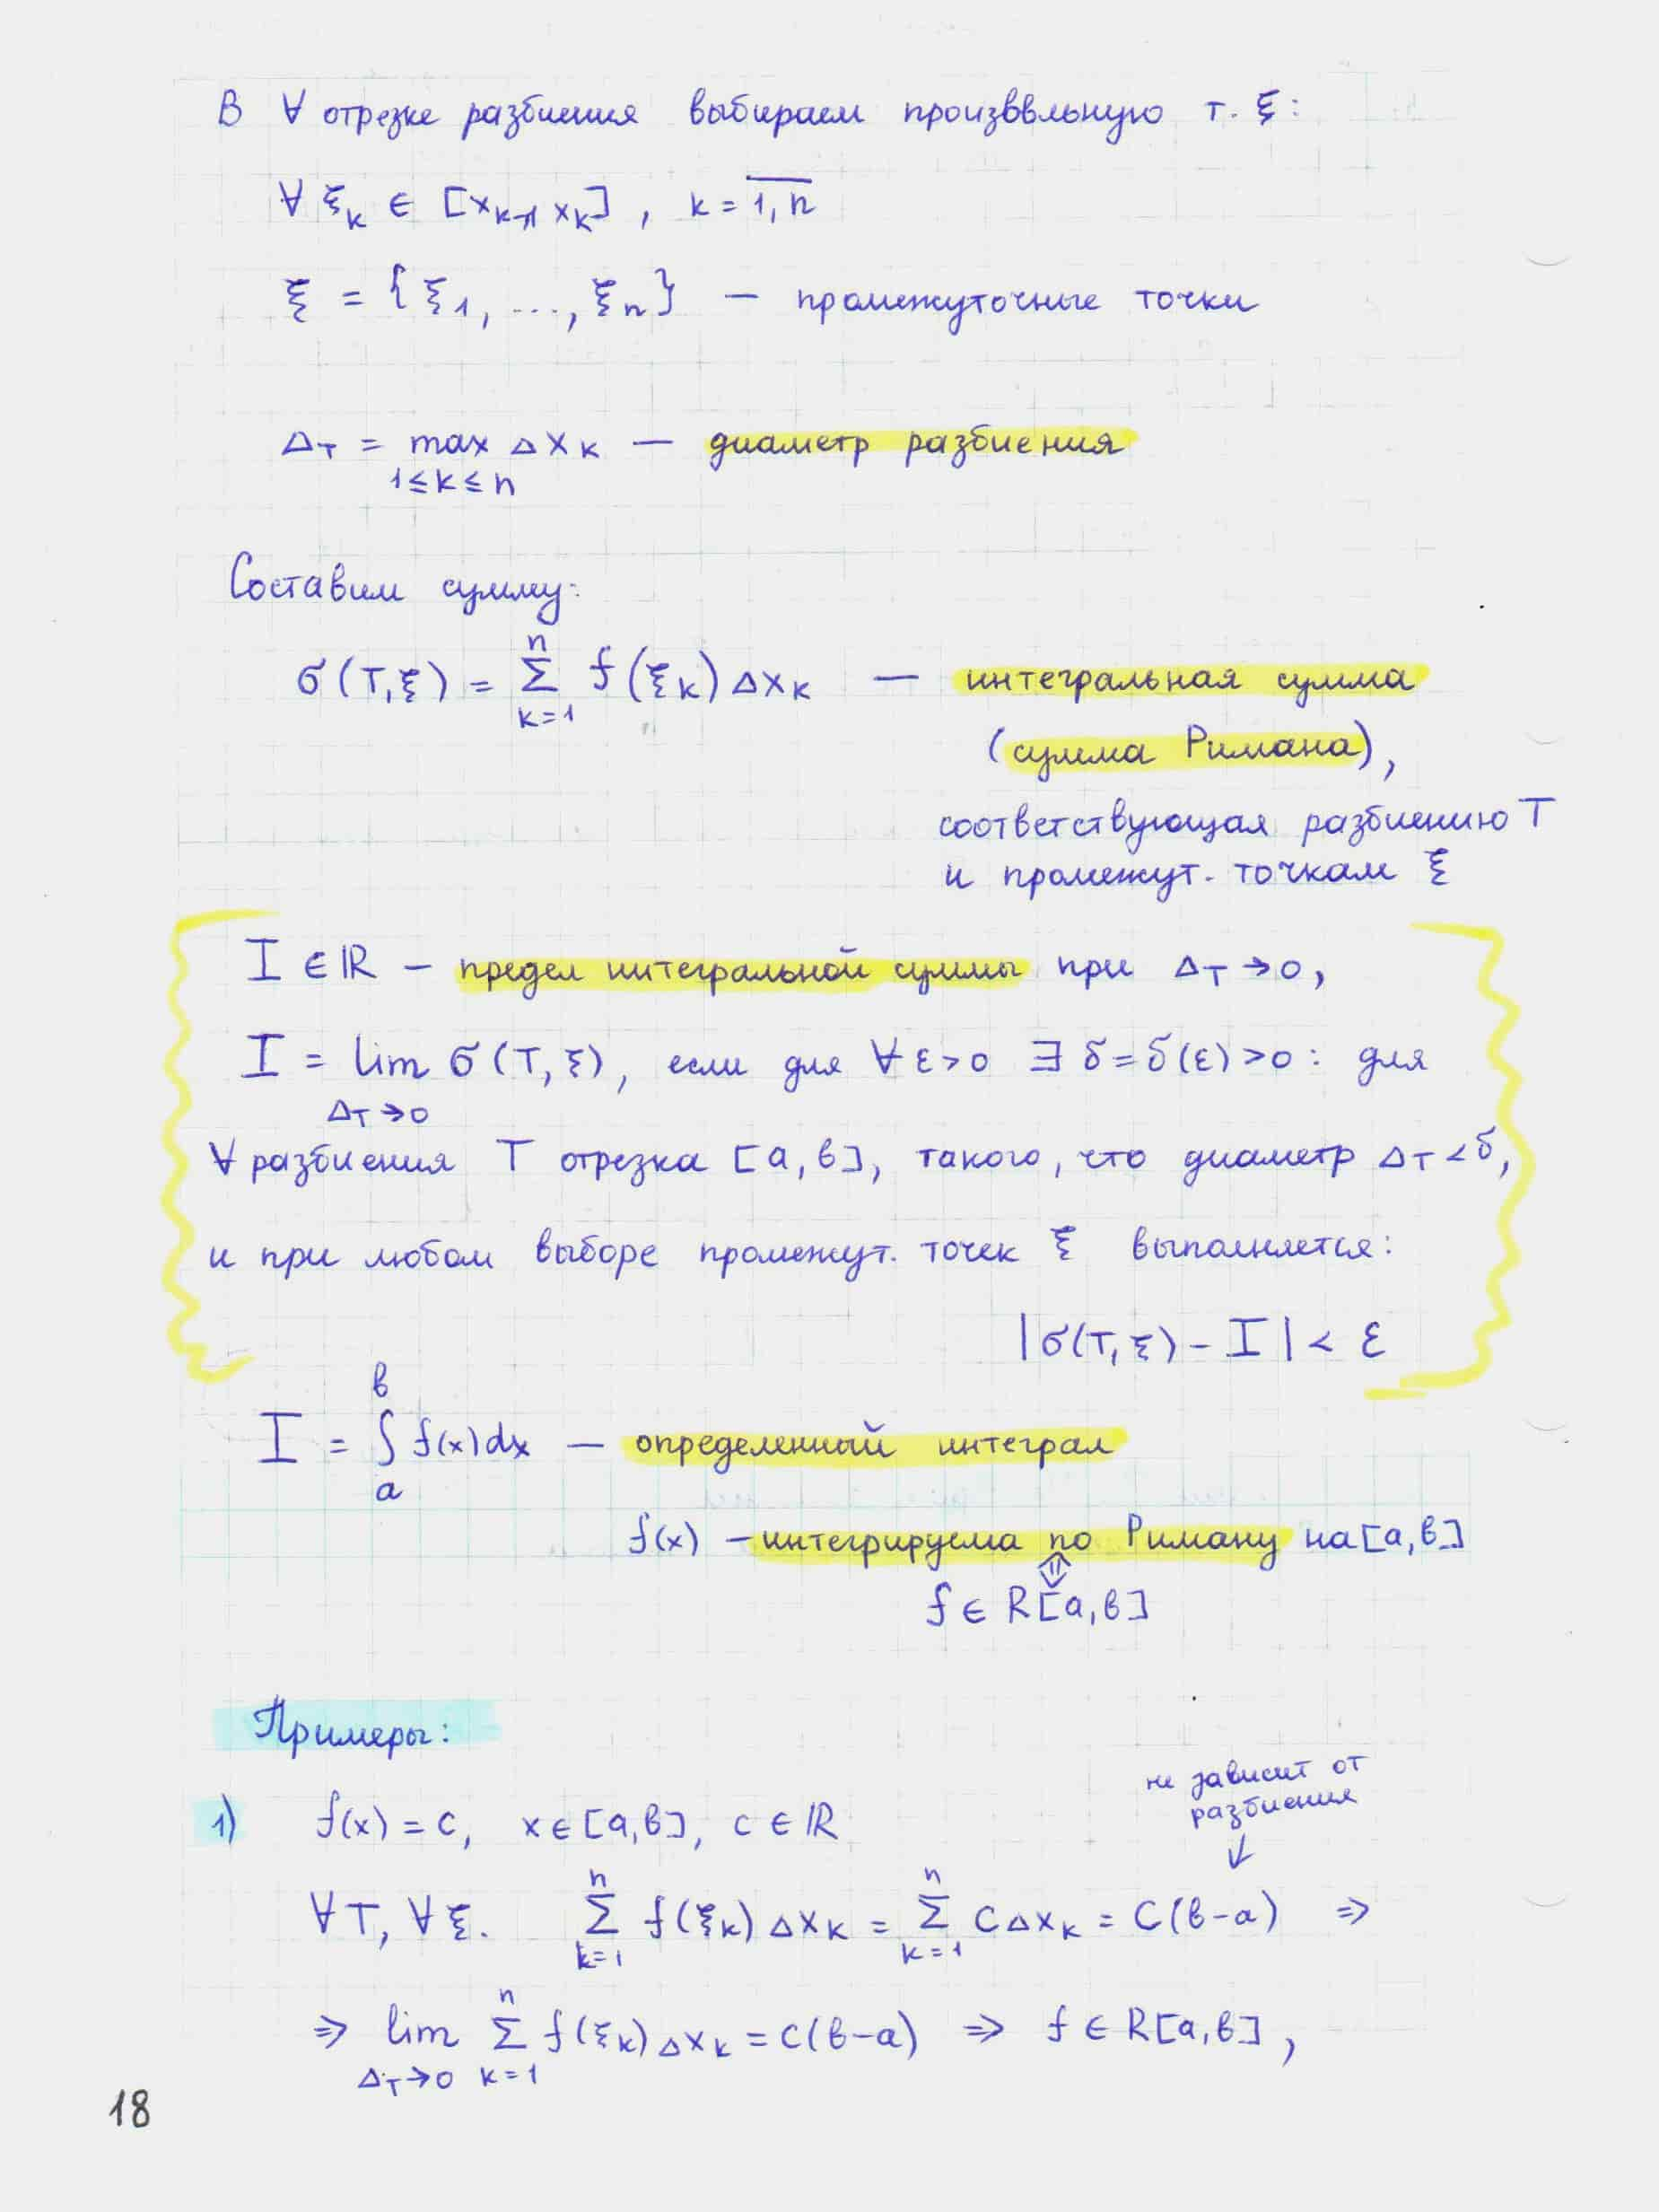 В ∀ отрезке разбиения выбираем произввльную т. ξ:
∀ ξ_k ∈ [x_{k-1}, x_k], k = \overline{1, n}
ξ = {ξ_1, ..., ξ_n} — промежуточные точки
Δ_T = max Δx_k — диаметр разбиения
1≤k≤n
Составим сумму:
n
σ(T, ξ) = Σ f(ξ_k) Δx_k — интегральная сумма
k=1
(сумма Римана),
соответствующая разбиению T
и промежут. точкам ξ
I ∈ ℝ — предел интегральной суммы при Δ_T → 0,
I = lim σ(T, ξ), если для ∀ ε > 0 ∃ δ = δ(ε) > 0: для
Δ_T → 0
∀ разбиения T отрезка [a, b], такого, что диаметр Δ_T < δ,
и при любом выборе промежут. точек ξ выполняется:
|σ(T, ξ) - I| < ε
b
I = ∫ f(x)dx — определенный интеграл
a
f(x) — интегрируема по Риману на [a, b]
⇕
f ∈ R[a, b]
Примеры:
не зависит от
разбиения
↓
1) f(x) = c, x ∈ [a, b], c ∈ ℝ
n n
∀ T, ∀ ξ. Σ f(ξ_k) Δx_k = Σ C Δx_k = C(b-a) ⇒
k=1 k=1
n
⇒ lim Σ f(ξ_k) Δx_k = C(b-a) ⇒ f ∈ R[a, b],
Δ_T → 0 k=1
18